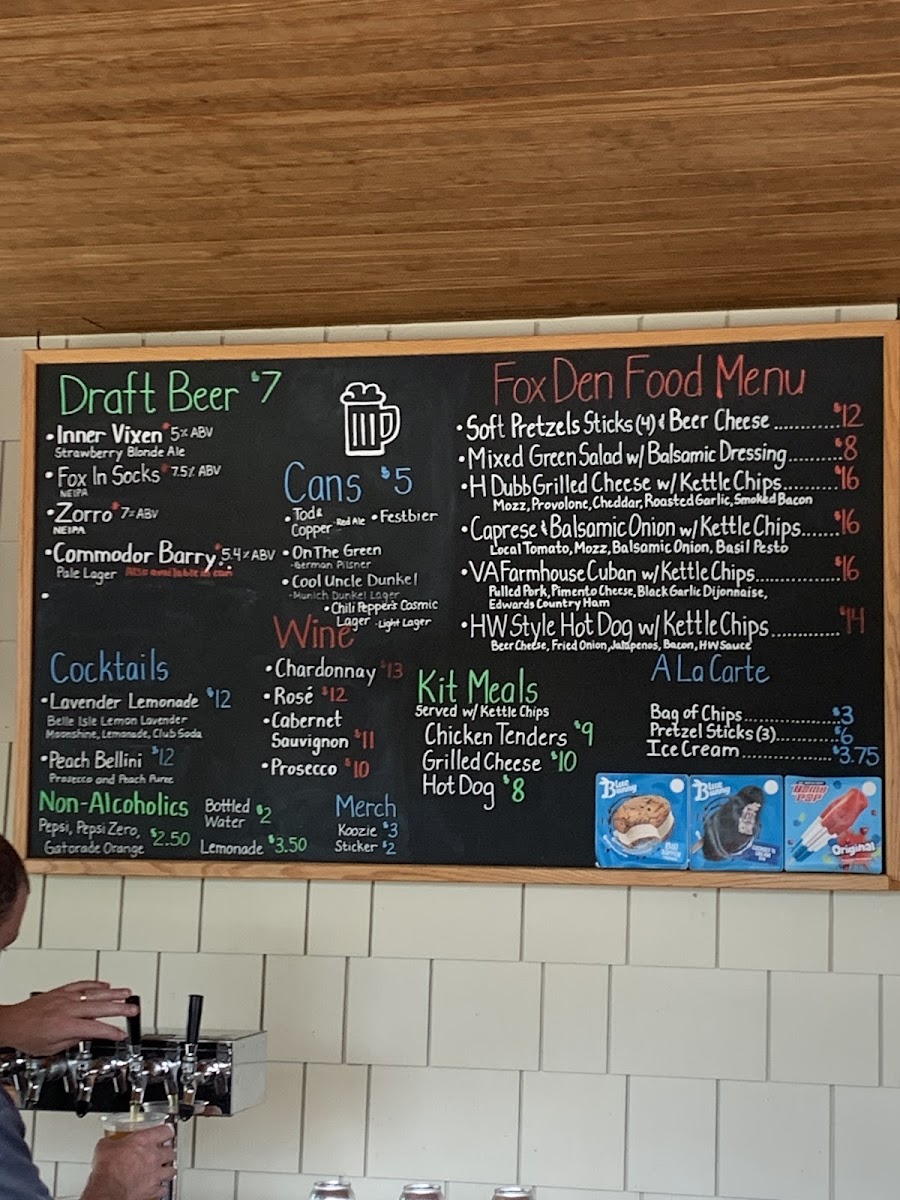 Draft Beer $7
• Inner Vixen 5% ABV
Strawberry Blonde Ale
• Fox In Socks 7.5% ABV
NEIPA
• Zorro 7% ABV
NEIPA
• Commodor Barry 5.4% ABV
Pale Lager Also available in can
•
Cans $5
• Tod & Copper - Red Ale • Festbier
• On The Green
- German Pilsner
• Cool Uncle Dunkel
- Munich Dunkel Lager
• Chili Pepper's Cosmic
Lager - Light Lager
Wine
• Chardonnay $13
• Rosé $12
• Cabernet
Sauvignon $11
• Prosecco $10
Cocktails
• Lavender Lemonade $12
Belle Isle Lemon Lavender
Moonshine, Lemonade, Club Soda
• Peach Bellini $12
Prosecco and Peach Puree
Non-Alcoholics
Pepsi, Pepsi Zero,
Gatorade Orange $2.50
Bottled
Water $2
Lemonade $3.50
Merch
Koozie $3
Sticker $2
Fox Den Food Menu
• Soft Pretzels Sticks (4) & Beer Cheese ........... $12
• Mixed Green Salad w/ Balsamic Dressing ......... $8
• H Dubb Grilled Cheese w/ Kettle Chips ......... $16
Mozz, Provolone, Cheddar, Roasted Garlic, Smoked Bacon
• Caprese & Balsamic Onion w/ Kettle Chips...... $16
Local Tomato, Mozz, Balsamic Onion, Basil Pesto
• VA Farmhouse Cuban w/ Kettle Chips............. $16
Pulled Pork, Pimento Cheese, Black Garlic Dijonnaise,
Edwards Country Ham
• HW Style Hot Dog w/ Kettle Chips........... $14
Beer Cheese, Fried Onion, Jalapenos, Bacon, HW Sauce
Kit Meals
Served w/ Kettle Chips
Chicken Tenders $9
Grilled Cheese $10
Hot Dog $8
A La Carte
Bag of Chips ............... $3
Pretzel Sticks (3)........... $6
Ice Cream ............... $3.75
Blue Bunny
Blue Bunny
BOMB POP
Original